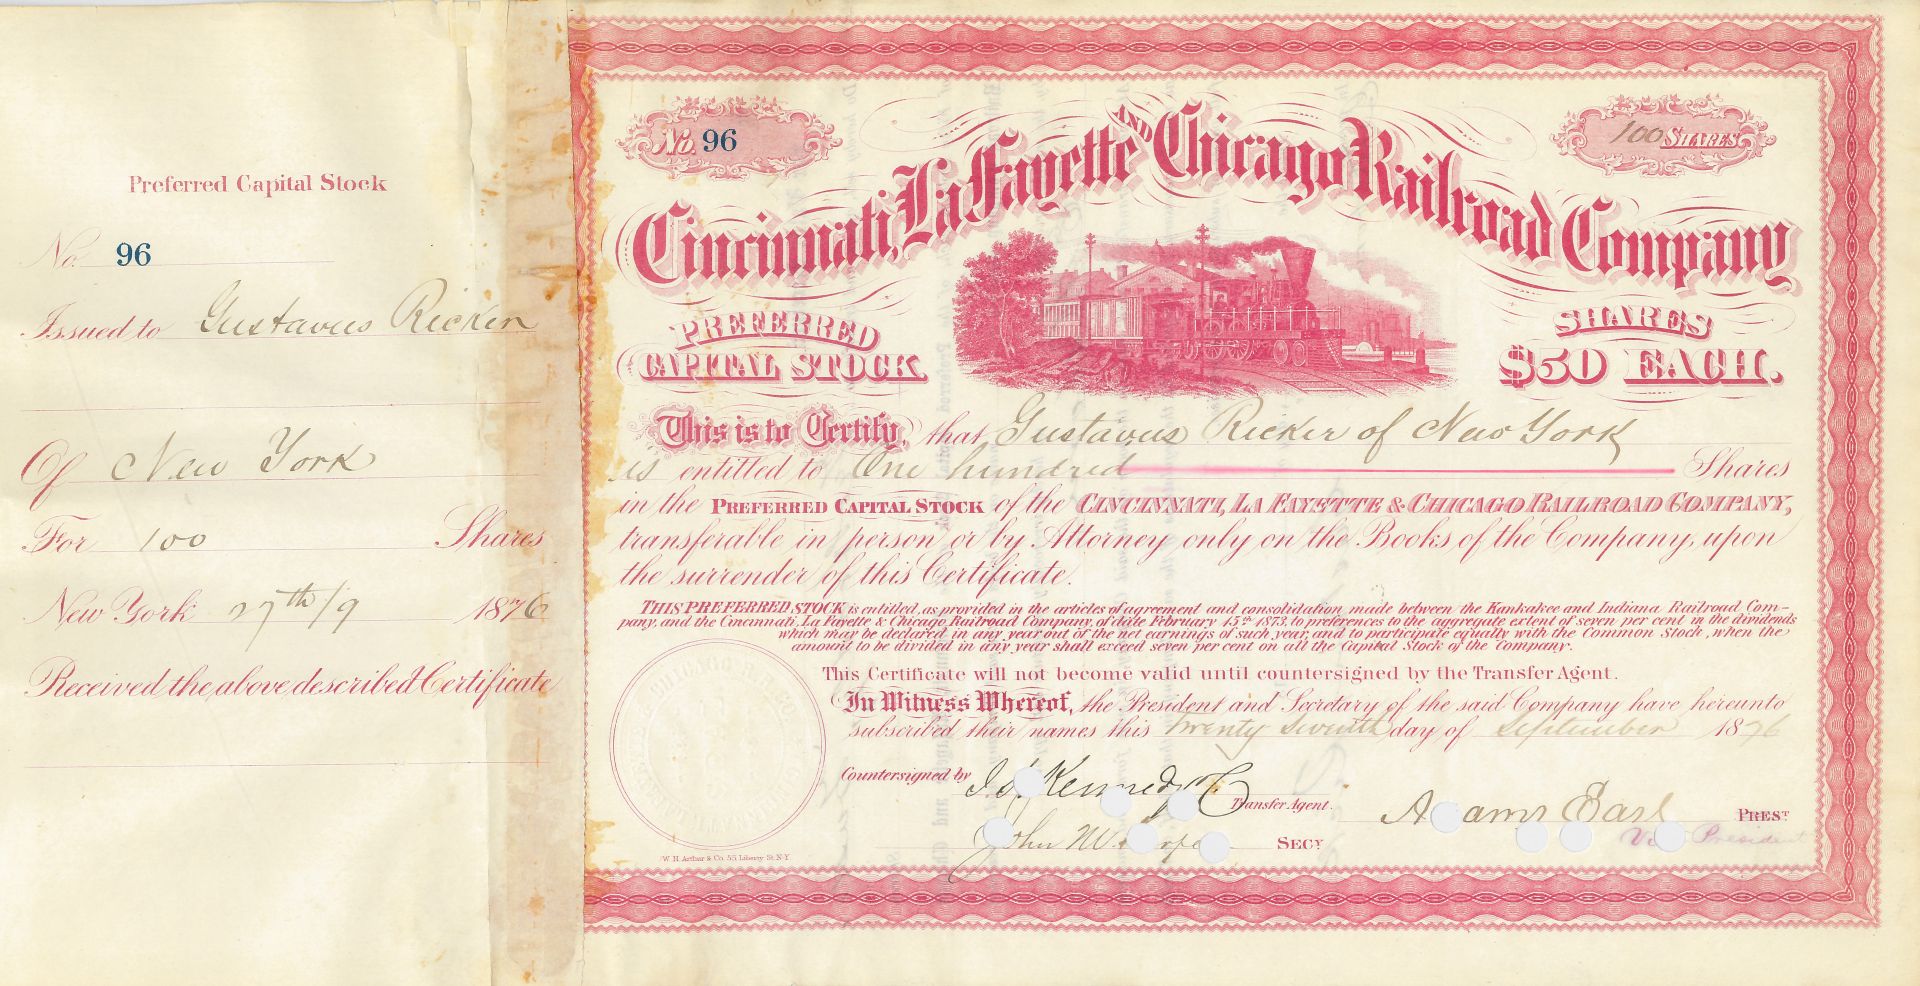 Preferred Capital Stock
No. 96
Issued to Gustavus Ricker
Of New York
For 100 Shares
New York 27th/9 1876
Received the above described Certificate
No. 96
100 SHARES
Cincinnati, La Fayette AND Chicago Railroad Company
PREFERRED
CAPITAL STOCK.
SHARES
$50 EACH.
This is to Certify, that Gustavus Ricker of New York
is entitled to One hundred Shares
in the PREFERRED CAPITAL STOCK of the CINCINNATI, LA FAYETTE & CHICAGO RAILROAD COMPANY,
transferable in person or by Attorney only on the Books of the Company, upon
the surrender of this Certificate.
THIS PREFERRED STOCK is entitled, as provided in the articles of agreement and consolidation made between the Kankakee and Indiana Railroad Com-
pany, and the Cincinnati, La Fayette & Chicago Railroad Company, of date February 15th 1873, to preferences to the aggregate extent of seven per cent in the dividends
which may be declared in any year out of the net earnings of such year, and to participate equally with the Common Stock, when the
amount to be divided in any year shall exceed seven per cent on all the Capital Stock of the Company.
This Certificate will not become valid until countersigned by the Transfer Agent.
In Witness Whereof, the President and Secretary of the said Company have hereunto
subscribed their names this twenty seventh day of September 1876
Countersigned by J.S. Kennedy & Co Transfer Agent.
Adams Earl PREST
Vice President
John M. SECY
W. H. Arthur & Co. 55 Liberty St. N.Y.